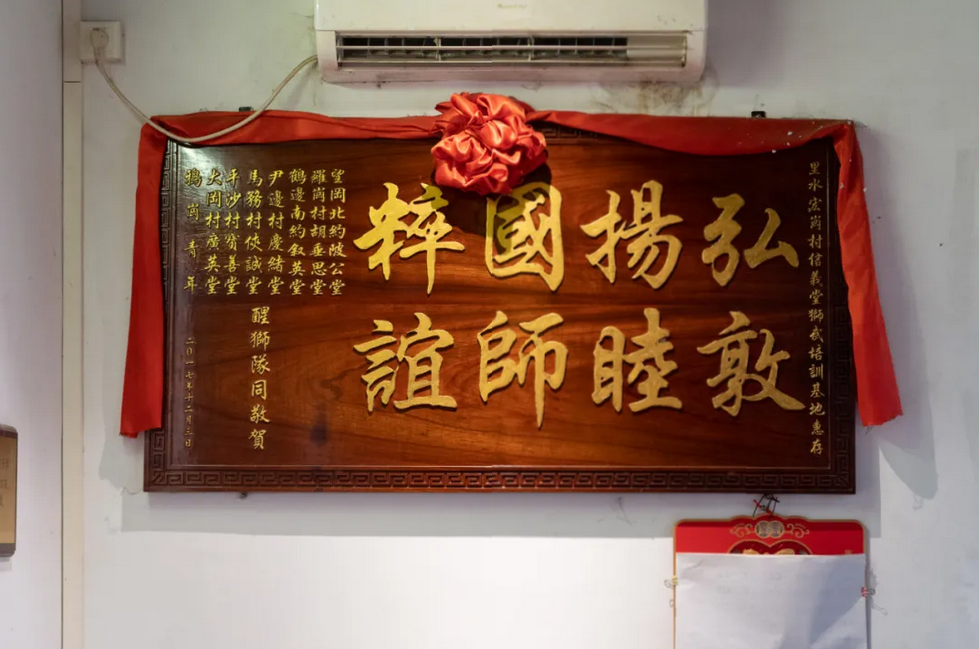 里水宏崗村信義堂獅武培訓基地惠存
弘揚國粹
敦睦師誼
望岡北約陂公堂
羅崗村胡垂思堂
鶴邊南約敘英堂
尹邊村慶緒堂
馬務村俠誠堂
平沙村寳善堂
大岡村廣英堂
鴉崗青年
醒獅隊同敬賀
二〇一七年十二月三日